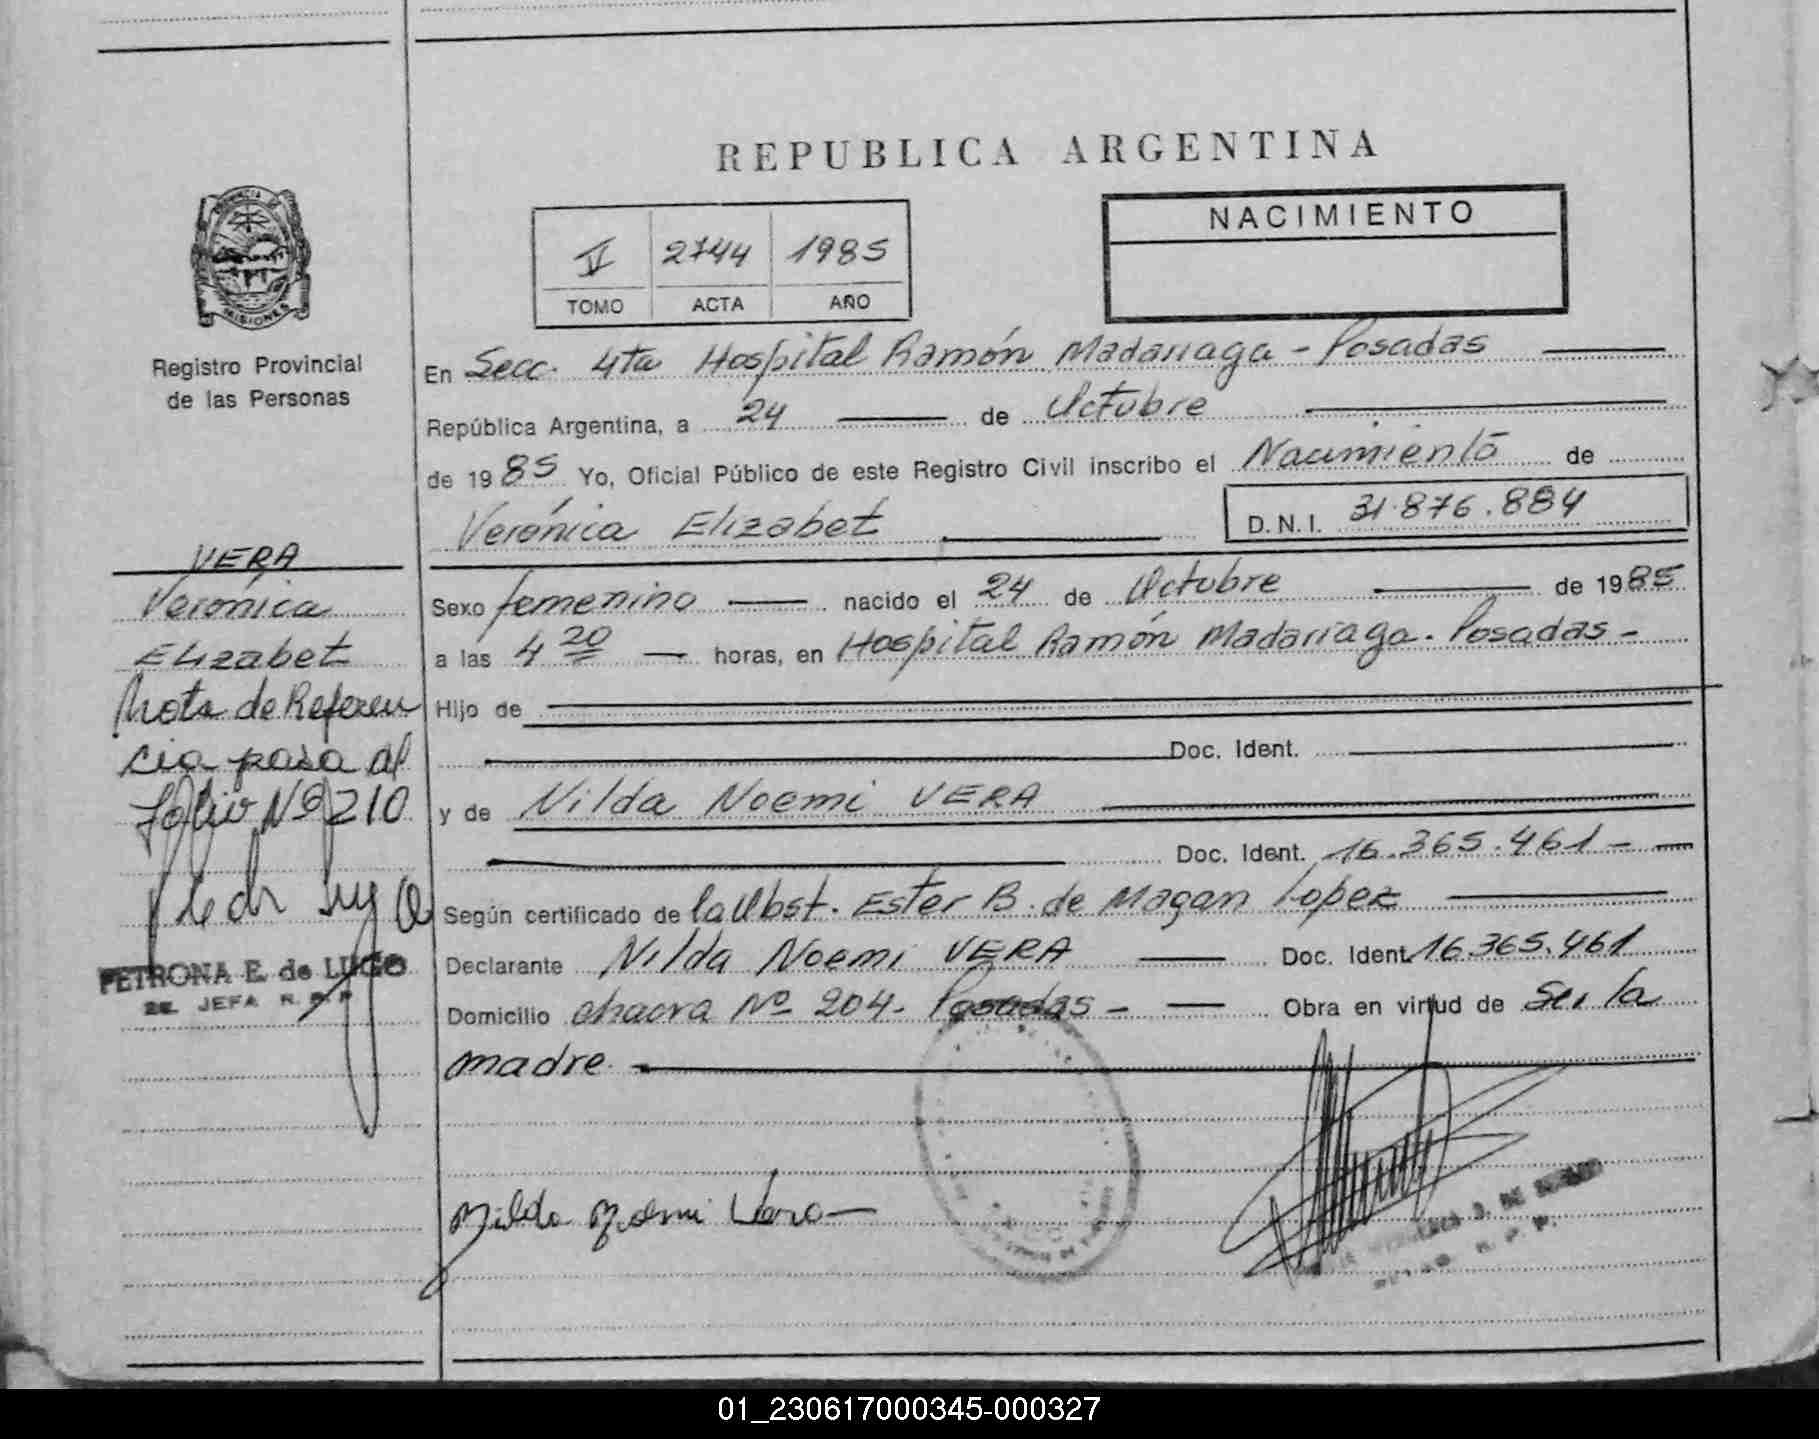 REPUBLICA ARGENTINA
PROVINCIA DE
MISIONES
Registro Provincial
de las Personas
V 2744 1985
TOMO ACTA AÑO
NACIMIENTO
En Secc. 4ta Hospital Ramón Madariaga - Posadas
República Argentina, a 24 de Octubre
de 1985 Yo, Oficial Público de este Registro Civil inscribo el Nacimiento de
Verónica Elizabet D.N.I. 31.876.884
VERA
Verónica
Elizabet
Nota de Referen
cia pasa al
folio Nº 210
PETRONA E. de LUGO
2E. JEFA R.P.P
Sexo femenino nacido el 24 de Octubre de 1985
a las 4 20 horas, en Hospital Ramón Madariaga. Posadas -
Hijo de
Doc. Ident.
y de Nilda Noemi VERA
Doc. Ident. 16.365.461 -
Según certificado de la Obst. Ester B. de Magan Lopez
Declarante Nilda Noemi VERA Doc. Ident. 16.365.461
Domicilio chacra Nº 204 - Posadas - Obra en virtud de Ser la
madre
Nilda Noemi Vera
01_230617000345-000327